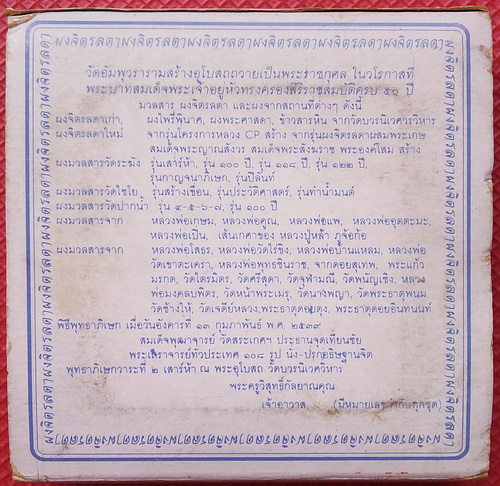 ผงจิตรลดาผงจิตรลดาผงจิตรลดาผงจิตรลดาผงจิตรลดาผงจิตรลดา
วัดอัมพวารามสร้างอุโบสถถวายเป็นพระราชกุศล ในวโรกาสที่
พระบาทสมเด็จพระเจ้าอยู่หัวทรงครองสิริราชสมบัติครบ ๕๐ ปี
มวลสาร ผงจิตรลดา และผงจากสถานที่ต่างๆ ดังนี้
ผงจิตรลดาเก่า, ผงไพรีพินาศ, ผงพระศาสดา, ข้าวสารหิน จากวัดบวรนิเวศวรวิหาร
ผงจิตรลดาใหม่ จากรุ่นโครงการหลวง CP สร้าง จากรุ่นผงจิตรลดาผสมพระเกษ
สมเด็จพระญาณสังวร สมเด็จพระสังฆราช พระองค์โสม สร้าง
ผงมวลสารวัดระฆัง รุ่นเสาร์ห้า, รุ่น ๑๐๐ ปี, รุ่น ๑๑๘ ปี, รุ่น ๑๒๒ ปี,
รุ่นกาญจนาภิเษก, รุ่นปิลันท์
ผงมวลสารวัดไชโย, รุ่นสร้างเขื่อน, รุ่นประวัติศาสตร์, รุ่นทำน้ำมนต์
ผงมวลสารวัดปากน้ำ รุ่น ๔-๕-๖-๗, รุ่น ๑๐๐ ปี
ผงมวลสารจาก หลวงพ่อเกษม, หลวงพ่อคูณ, หลวงพ่อแพ, หลวงพ่ออุตตะมะ,
หลวงพ่อเปิ่น, เส้นเกศาของ หลวงปู่หล้า ภูจ้อก้อ
ผงมวลสารจาก หลวงพ่อโสธร, หลวงพ่อวัดไร่ขิง, หลวงพ่อบ้านแหลม, หลวงพ่อ
วัดเขาตะเครา, หลวงพ่อพุทธชินราช, จากดอยสุเทพ, พระแก้ว
มรกต, วัดไตรมิตร, วัดศรีสุดา, วัดจุฬามณี, วัดพนัญเชิง, หลวง
พ่อมงคลบพิตร, วัดหน้าพระเมรุ, วัดนางพญา, วัดพระธาตุพนม
วัดช้างไห้, วัดเจดีย์หลวง,พระธาตุดอยตุง, พระธาตุดอยอินทนนท์
พิธีพุทธาภิเษก เมื่อวันอังคารที่ ๑๓ กุมภาพันธ์ พ.ศ. ๒๕๓๙
สมเด็จพุฒาจารย์ วัดสระเกศฯ ประธานจุดเทียนชัย
พระเถราจารย์ทั่วประเทศ ๑๐๘ รูป นั่ง-ปรกอธิษฐานจิต
พุทธาภิเษกวาระที่ ๒ เสาร์ห้า ณ พระอุโบสถ วัดบวรนิเวศวิหาร
พระครูวิสุทธิ์กัลยาณคุณ
เจ้าอาวาส (มีหมายเลขกำกับทุกชุด)
ผงจิตรลดาผงจิตรลดาผงจิตรลดาผงจิตรลดาผงจิตรลดาผงจิตรลดา